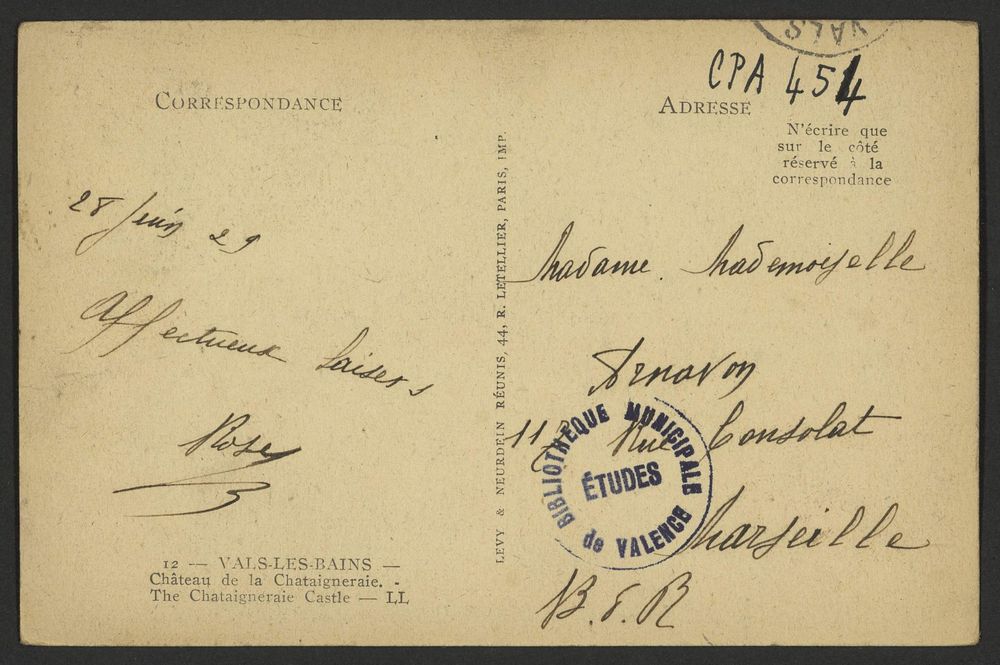 VALS
CPA 454
CORRESPONDANCE
ADRESSE
N'écrire que
sur le côté
réservé à la
correspondance
28 Juin 29
Affectueux baisers
Rose
LEVY & NEURDEIN RÉUNIS, 44, R. LETELLIER, PARIS, IMP.
Madame. Mademoiselle
Arnavon
Rue Consolat
Marseille
B. d. R
BIBLIOTHEQUE MUNICIPALE
ÉTUDES
de VALENCE
12 — VALS-LES-BAINS —
Château de la Chataigneraie. -
The Chataigneraie Castle — LL